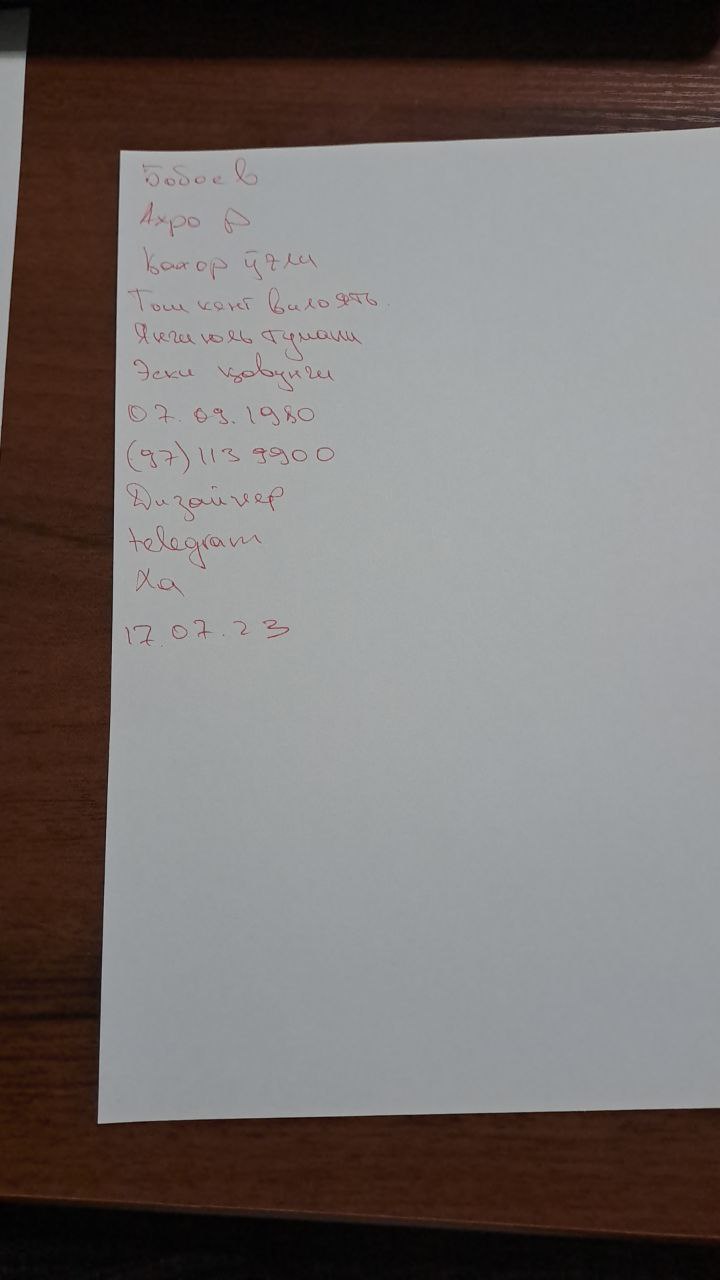 Бобоев
Ахро р
Бахор ўғли
Тошкент вилоять.
Янгиюль тумани
Эски қовунчи
07.09.1980
(97) 113 9900
Дизайнер
telegram
Ха
17.07.23